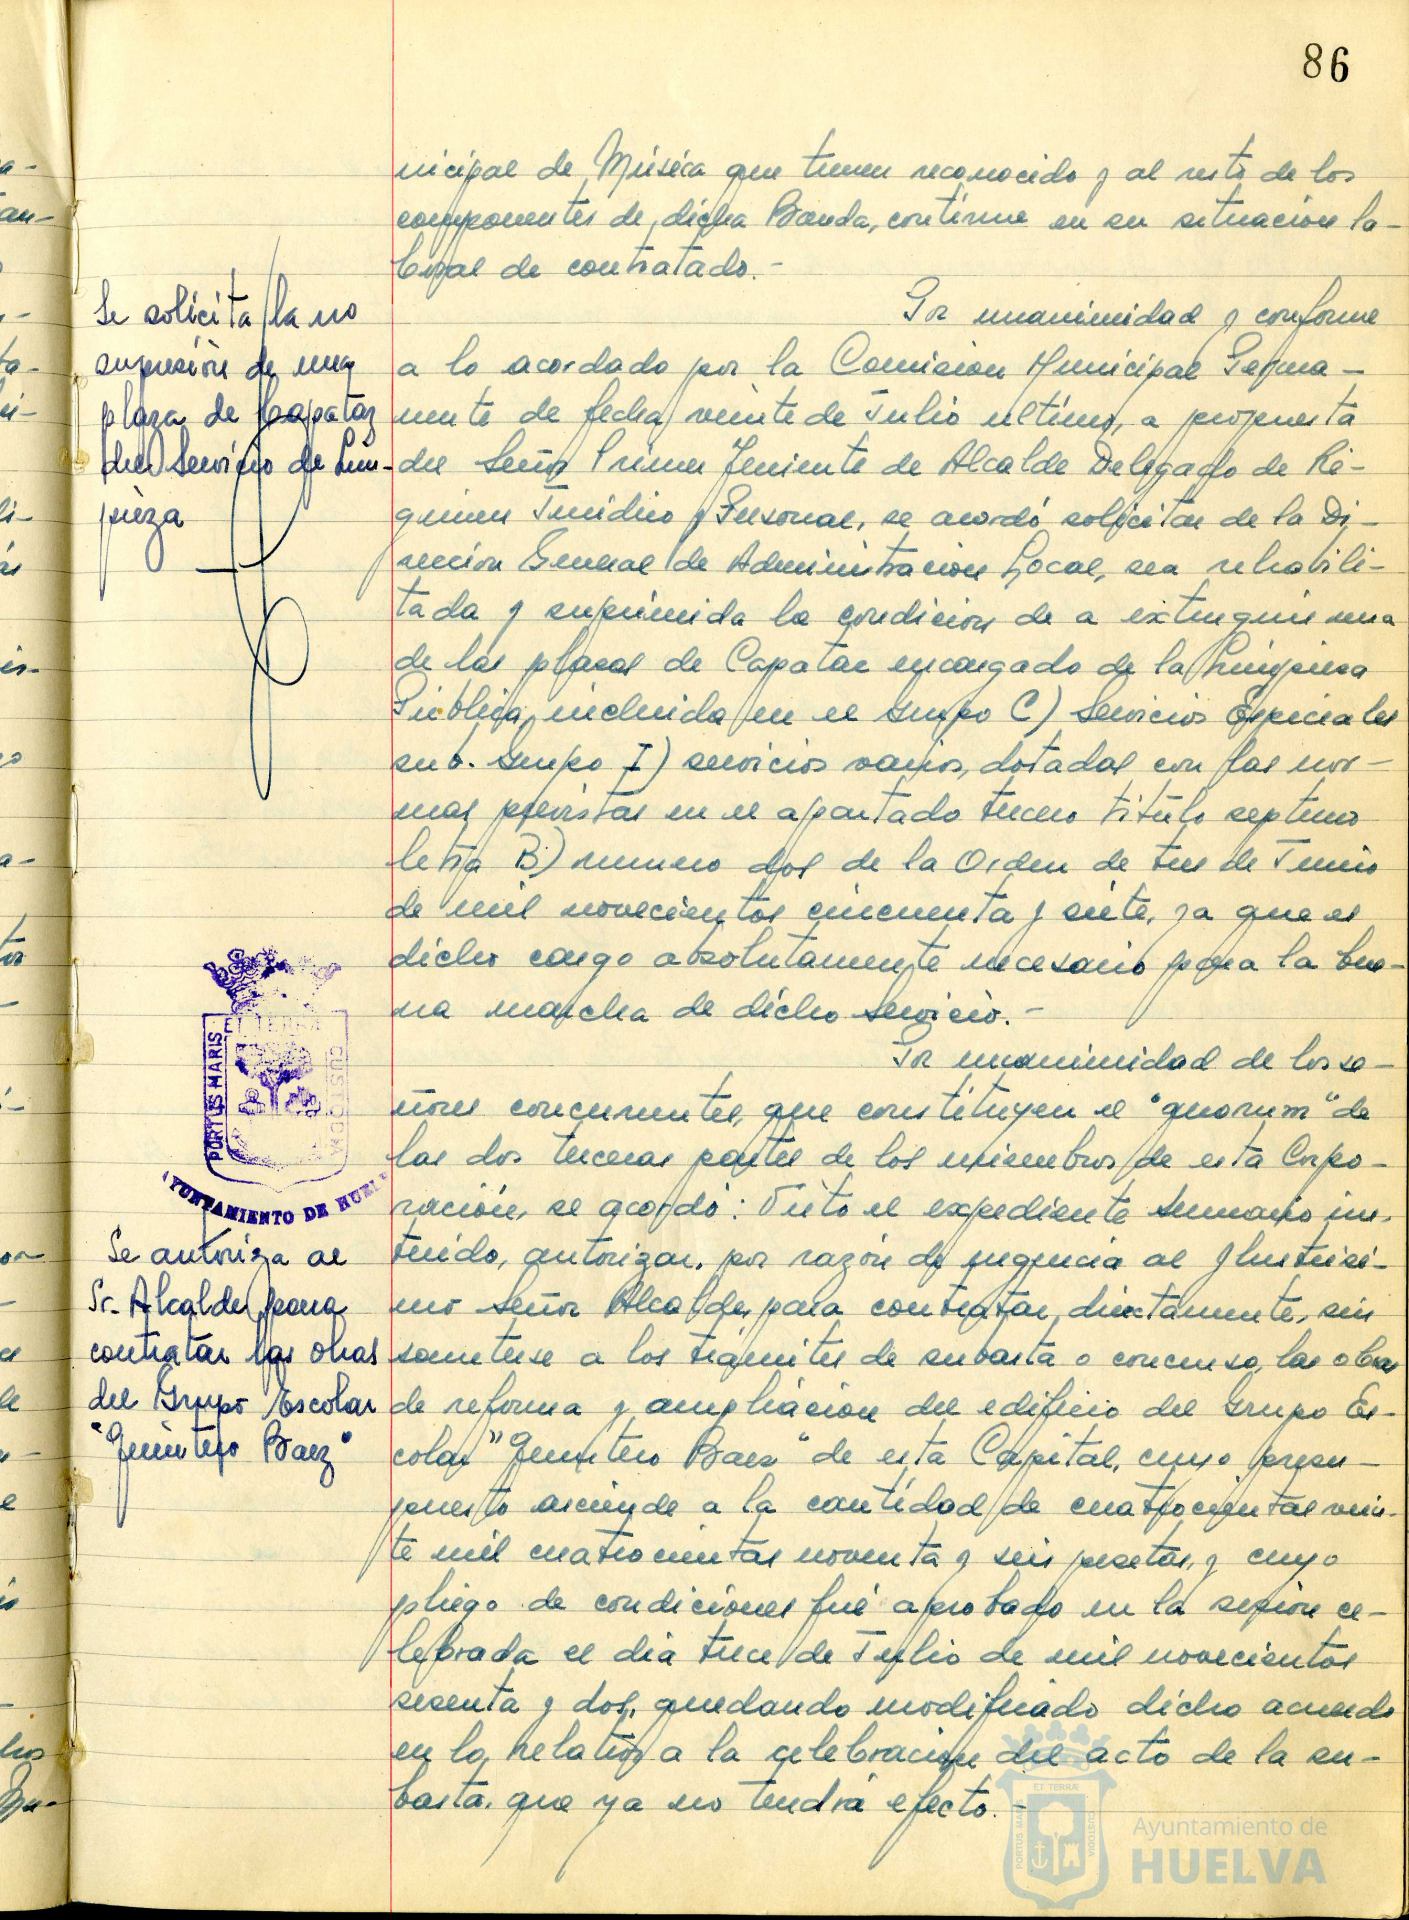 86
nicipal de Música que tienen reconocido y al resto de los
componentes de dicha Banda, continue en su situación la-
boral de contratado.-
Se solicita la no
supresión de una
plaza de Capataz
del Servicio de Lim-
pieza
Por unanimidad y conforme
a lo acordado por la Comision Municipal Perma-
nente de fecha veinte de Julio ultimo, a propuesta
del Señor Primer Teniente de Alcalde Delegado de Ré-
gimen Juridico y Personal, se acordó solicitar de la Di-
reccion General de Administracion Local, sea rehabili-
tada y suprimida la condicion de a extinguir una
de las plazas de Capataz encargado de la Limpieza
Pública, incluida en el Grupo C) Servicios Especiales
sub. Grupo I) servicios varios, dotadas con las nor-
mas previstas en el apartado tercero titulo septimo
letra B) numero dos de la Orden de tres de Junio
de mil novecientos cincuenta y siete, ya que es
dicho cargo absolutamente necesario para la bue-
na marcha de dicho Servicio.-
PORTUS MARIS
ET TERRAE
CUSTODIA
AYUNTAMIENTO DE HUELVA
Se autoriza al
Sr. Alcalde para
contratar las obras
del Grupo Escolar
"Quintero Baez"
Por unanimidad de los se-
ñores concurrentes, que constituyen el "quorum" de
las dos terceras partes de los miembros de esta Corpo-
ración, se acordó: Visto el expediente sumario ins-
truido, autorizar, por razón de urgencia al Ilustrisi-
mo Señor Alcalde, para contratar, directamente, sin
someterse a los trámites de subasta o concurso, las obras
de reforma y ampliación del edificio del Grupo Es-
colar "Quintero Baez" de esta Capital, cuyo presu-
puesto asciende a la cantidad de cuatrocientas vein-
te mil cuatrocientas noventa y seis pesetas, y cuyo
pliego de condiciones fué aprobado en la sesión ce-
lebrada el dia trece de Julio de mil novecientos
sesenta y dos, quedando modificado dicho acuerdo
en lo relativo a la celebracion del acto de la su-
basta, que ya no tendrá efecto.-
PORTUS MARIS
ET TERRAE
CUSTODIA
Ayuntamiento de
HUELVA